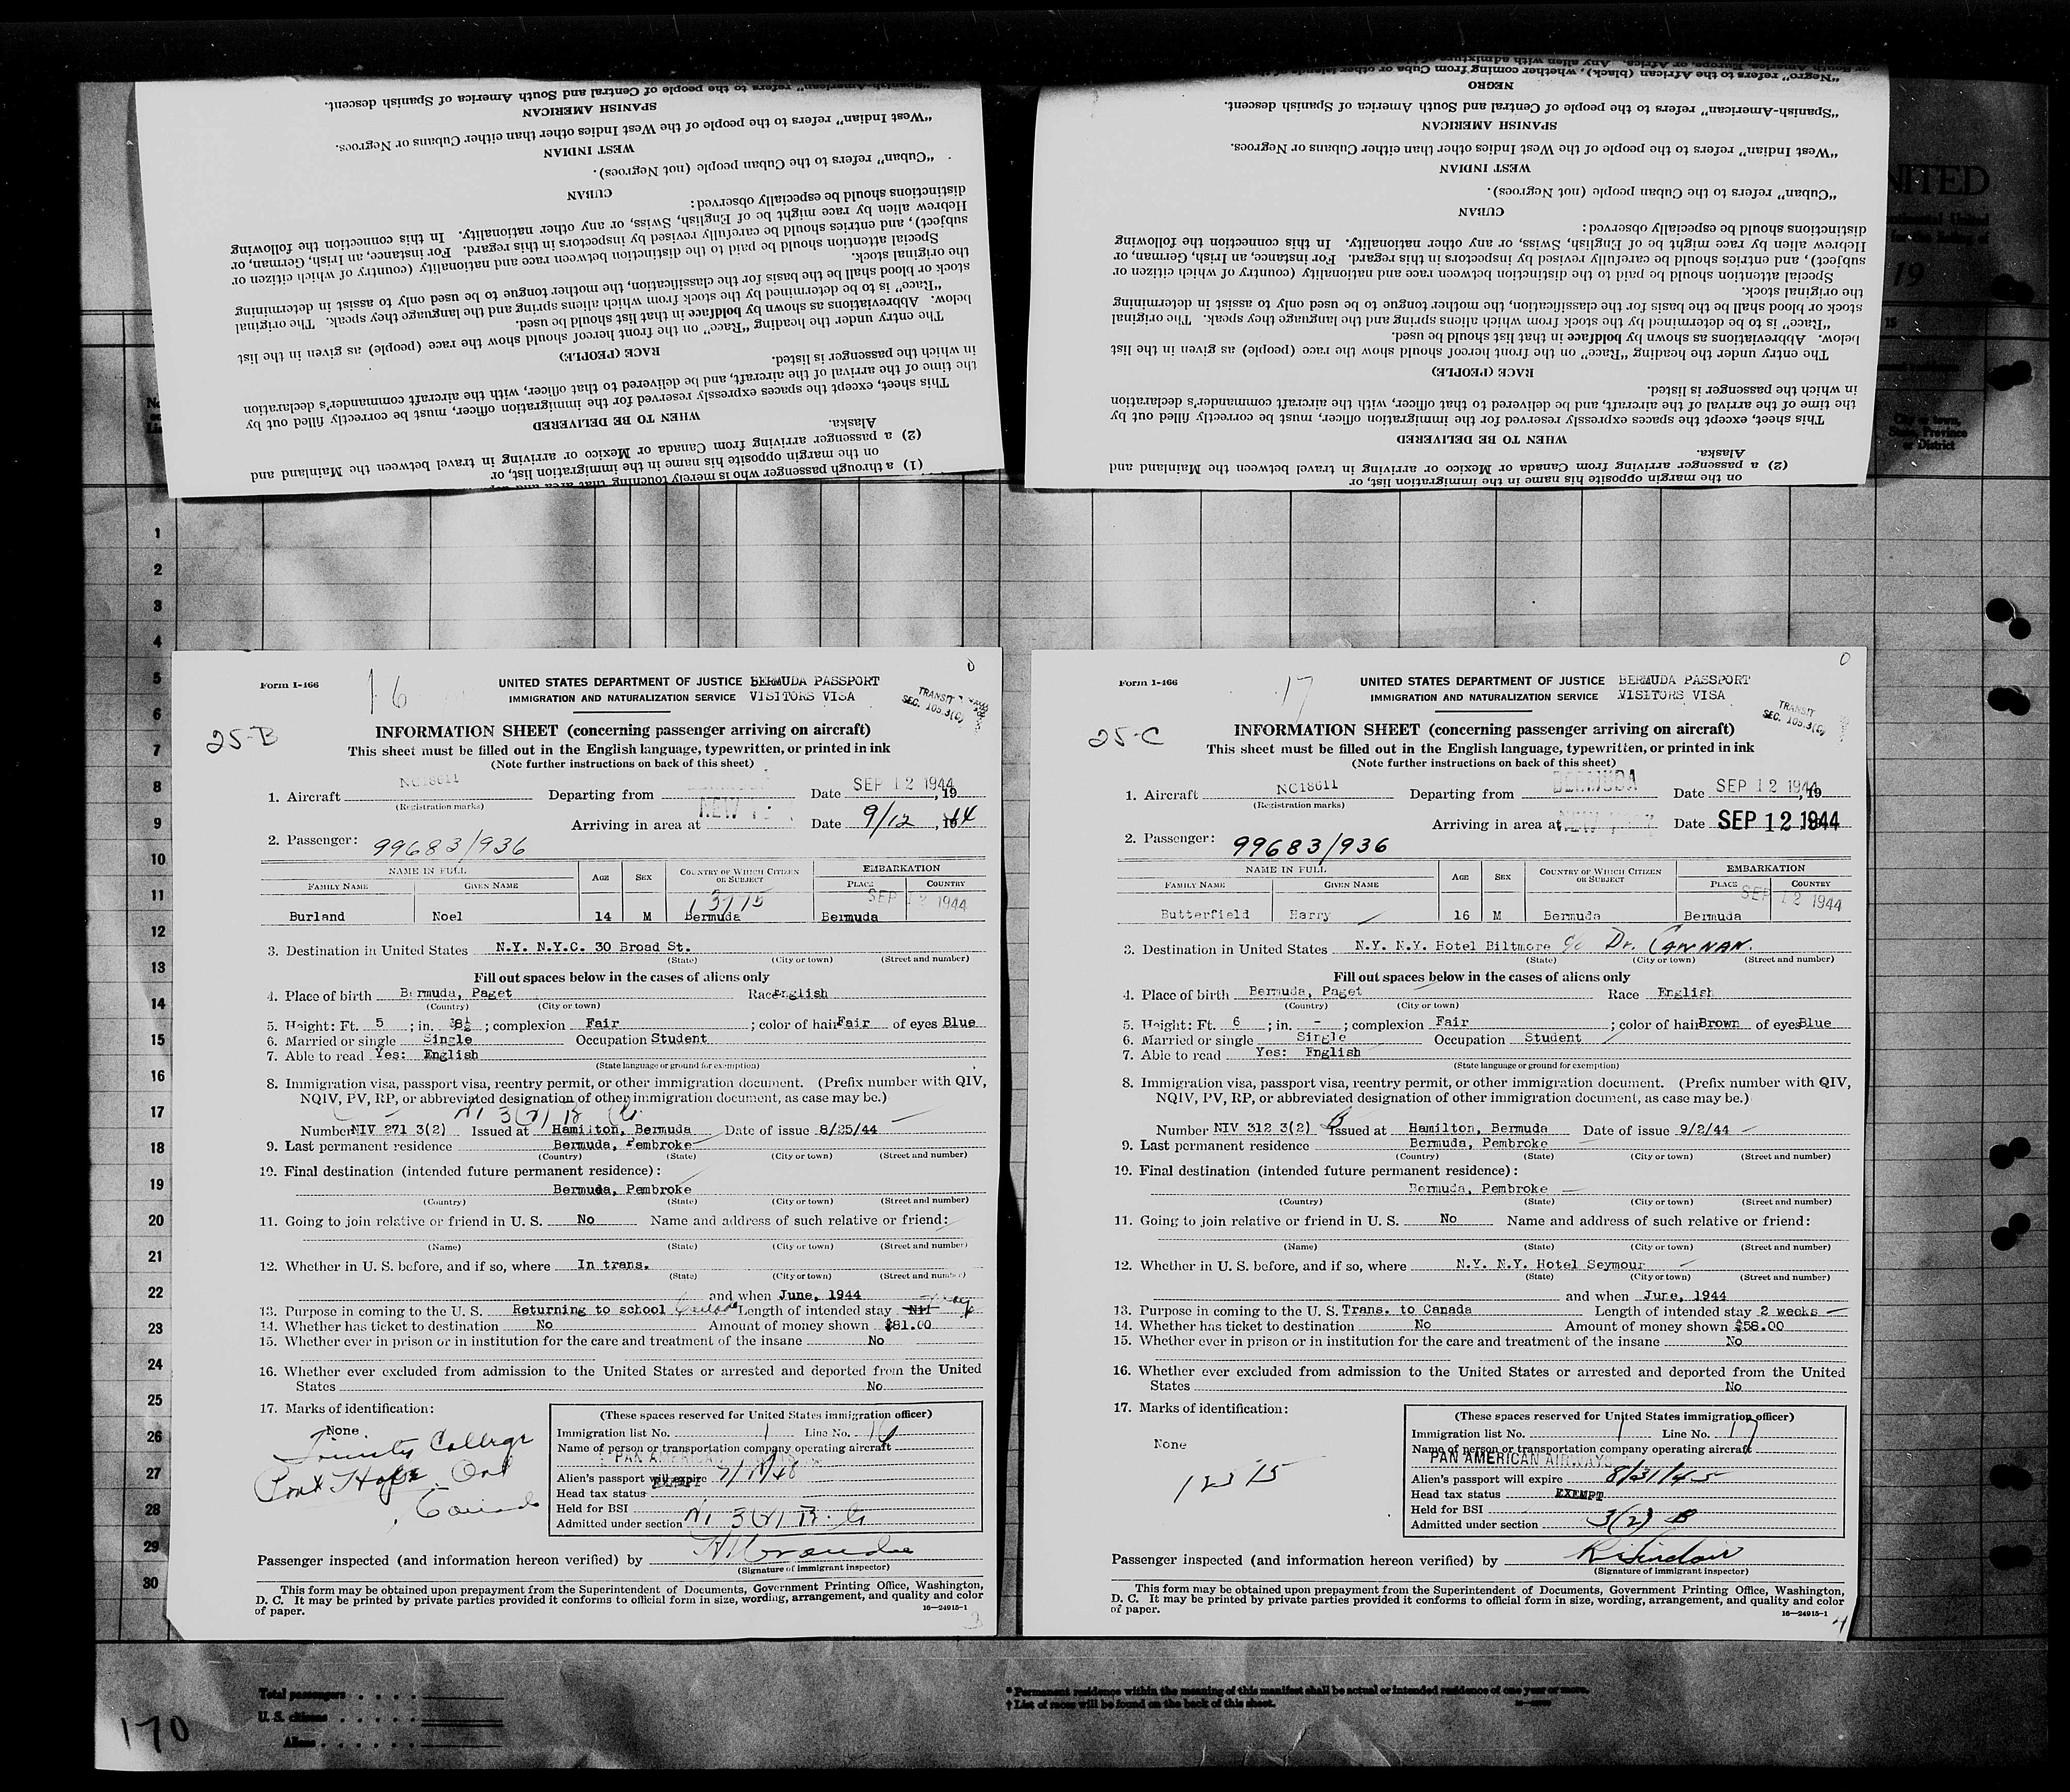 "Spanish-American" refers to the people of Central and South America of Spanish descent.
SPANISH AMERICAN
"West Indian" refers to the people of the West Indies other than either Cubans or Negroes.
WEST INDIAN
"Cuban" refers to the Cuban people (not Negroes).
CUBAN
distinctions should be especially observed:
Hebrew alien by race might be of English, Swiss, or any other nationality. In this connection the following
subject), and entries should be carefully revised by inspectors in this regard. For instance, an Irish, German, or
Special attention should be paid to the distinction between race and nationality (country of which citizen or
the original stock.
stock or blood shall be the basis for the classification, the mother tongue to be used only to assist in determining
"Race" is to be determined by the stock from which aliens spring and the language they speak. The original
below. Abbreviations as shown by boldface in that list should be used.
The entry under the heading "Race" on the front hereof should show the race (people) as given in the list
RACE (PEOPLE)
in which the passenger is listed.
the time of the arrival of the aircraft, and be delivered to that officer, with the aircraft commander's declaration
This sheet, except the spaces expressly reserved for the immigration officer, must be correctly filled out by
WHEN TO BE DELIVERED
Alaska.
(2) a passenger arriving from Canada or Mexico or arriving in travel between the Mainland and
on the margin opposite his name in the immigration list, or
(1) a through passenger who is merely touching that area and
"Negro" refers to the African (black), whether coming from Cuba or other islands of the
NEGRO
"Spanish-American" refers to the people of Central and South America of Spanish descent.
SPANISH AMERICAN
"West Indian" refers to the people of the West Indies other than either Cubans or Negroes.
WEST INDIAN
"Cuban" refers to the Cuban people (not Negroes).
CUBAN
distinctions should be especially observed:
Hebrew alien by race might be of English, Swiss, or any other nationality. In this connection the following
subject), and entries should be carefully revised by inspectors in this regard. For instance, an Irish, German, or
Special attention should be paid to the distinction between race and nationality (country of which citizen or
the original stock.
stock or blood shall be the basis for the classification, the mother tongue to be used only to assist in determining
"Race" is to be determined by the stock from which aliens spring and the language they speak. The original
below. Abbreviations as shown by boldface in that list should be used.
The entry under the heading "Race" on the front hereof should show the race (people) as given in the list
RACE (PEOPLE)
in which the passenger is listed.
the time of the arrival of the aircraft, and be delivered to that officer, with the aircraft commander's declaration
This sheet, except the spaces expressly reserved for the immigration officer, must be correctly filled out by
WHEN TO BE DELIVERED
Alaska.
(2) a passenger arriving from Canada or Mexico or arriving in travel between the Mainland and
on the margin opposite his name in the immigration list, or
NITED
19
15
State, Province
or District
1
2
3
4
5
6
7
8
9
10
11
12
13
14
15
16
17
18
19
20
21
22
23
24
25
26
27
28
29
30
Form I-466
16
UNITED STATES DEPARTMENT OF JUSTICE BERMUDA PASSPORT
IMMIGRATION AND NATURALIZATION SERVICE VISITORS VISA
TRANSIT
SEC. 105.3(C)
25-B
INFORMATION SHEET (concerning passenger arriving on aircraft)
This sheet must be filled out in the English language, typewritten, or printed in ink
(Note further instructions on back of this sheet)
1. Aircraft NC18611 Departing from Date SEP 12 1944, 19
(Registration marks)
Arriving in area at NEW Date 9/12, 1944
2. Passenger: 99683/936
NAME IN FULL AGE SEX COUNTRY OF WHICH CITIZEN OR SUBJECT EMBARKATION
FAMILY NAME GIVEN NAME PLACE COUNTRY
SEP 12 1944
Burland Noel 14 M Bermuda Bermuda
3. Destination in United States N.Y. N.Y.C. 30 Broad St.
(State) (City or town) (Street and number)
Fill out spaces below in the cases of aliens only
4. Place of birth Bermuda, Paget Race English
(Country) (City or town)
5. Height: Ft. 5 ; in. 8½ ; complexion Fair ; color of hair Fair of eyes Blue
6. Married or single Single Occupation Student
7. Able to read Yes: English
(State language or ground for exemption)
8. Immigration visa, passport visa, reentry permit, or other immigration document. (Prefix number with QIV,
NQIV, PV, RP, or abbreviated designation of other immigration document, as case may be.)
Number NIV 271 3(2) Issued at Hamilton, Bermuda Date of issue 8/25/44
9. Last permanent residence Bermuda, Pembroke
(Country) (State) (City or town) (Street and number)
10. Final destination (intended future permanent residence):
Bermuda, Pembroke
(Country) (State) (City or town) (Street and number)
11. Going to join relative or friend in U. S. No Name and address of such relative or friend:
(Name) (State) (City or town) (Street and number)
12. Whether in U. S. before, and if so, where In trans.
(State) (City or town) (Street and number)
and when June, 1944
13. Purpose in coming to the U. S. Returning to school Canada Length of intended stay Nil
14. Whether has ticket to destination No Amount of money shown $81.00
15. Whether ever in prison or in institution for the care and treatment of the insane No
16. Whether ever excluded from admission to the United States or arrested and deported from the United
States No
17. Marks of identification:
None
Trinity College
Port Hope, Ont
Canada
(These spaces reserved for United States immigration officer)
Immigration list No. 1 Line No. 16
Name of person or transportation company operating aircraft
PAN AMERICAN
Alien's passport will expire
Head tax status EXEMPT
Held for BSI
Admitted under section
Passenger inspected (and information hereon verified) by
(Signature of immigrant inspector)
This form may be obtained upon prepayment from the Superintendent of Documents, Government Printing Office, Washington,
D. C. It may be printed by private parties provided it conforms to official form in size, wording, arrangement, and quality and color
of paper. 16—24915-1
3
Form I-466
17
UNITED STATES DEPARTMENT OF JUSTICE BERMUDA PASSPORT
IMMIGRATION AND NATURALIZATION SERVICE VISITORS VISA
TRANSIT
SEC. 105.3(C)
25-C
INFORMATION SHEET (concerning passenger arriving on aircraft)
This sheet must be filled out in the English language, typewritten, or printed in ink
(Note further instructions on back of this sheet)
1. Aircraft NC18611 Departing from BERMUDA Date SEP 12 1944, 19
(Registration marks)
Arriving in area at Date SEP 12 1944
2. Passenger: 99683/936
NAME IN FULL AGE SEX COUNTRY OF WHICH CITIZEN OR SUBJECT EMBARKATION
FAMILY NAME GIVEN NAME PLACE COUNTRY
SEP 12 1944
Butterfield Harry 16 M Bermuda Bermuda
3. Destination in United States N.Y. N.Y. Hotel Biltmore c/o Dr. CANNAN.
(State) (City or town) (Street and number)
Fill out spaces below in the cases of aliens only
4. Place of birth Bermuda, Paget Race English
(Country) (City or town)
5. Height: Ft. 6 ; in. - ; complexion Fair ; color of hair Brown of eyes Blue
6. Married or single Single Occupation Student
7. Able to read Yes: English
(State language or ground for exemption)
8. Immigration visa, passport visa, reentry permit, or other immigration document. (Prefix number with QIV,
NQIV, PV, RP, or abbreviated designation of other immigration document, as case may be.)
Number NIV 312 3(2) B Issued at Hamilton, Bermuda Date of issue 9/2/44
9. Last permanent residence Bermuda, Pembroke
(Country) (State) (City or town) (Street and number)
10. Final destination (intended future permanent residence):
Bermuda, Pembroke
(Country) (State) (City or town) (Street and number)
11. Going to join relative or friend in U. S. No Name and address of such relative or friend:
(Name) (State) (City or town) (Street and number)
12. Whether in U. S. before, and if so, where N.Y. N.Y. Hotel Seymour
(State) (City or town) (Street and number)
and when June, 1944
13. Purpose in coming to the U. S. Trans. to Canada Length of intended stay 2 weeks
14. Whether has ticket to destination No Amount of money shown $58.00
15. Whether ever in prison or in institution for the care and treatment of the insane No
16. Whether ever excluded from admission to the United States or arrested and deported from the United
States No
17. Marks of identification:
None
(These spaces reserved for United States immigration officer)
Immigration list No. 1 Line No. 17
Name of person or transportation company operating aircraft
PAN AMERICAN AIRWAYS
Alien's passport will expire 8/31/45
Head tax status EXEMPT
Held for BSI
Admitted under section 3(2) B
Passenger inspected (and information hereon verified) by R Sinclair
(Signature of immigrant inspector)
This form may be obtained upon prepayment from the Superintendent of Documents, Government Printing Office, Washington,
D. C. It may be printed by private parties provided it conforms to official form in size, wording, arrangement, and quality and color
of paper. 16—24915-1
4
Total passengers
U. S. citizens
Aliens
* Permanent residence within the meaning of this manifest shall be actual or intended residence of one year or more.
† List of races will be found on the back of this sheet.
170